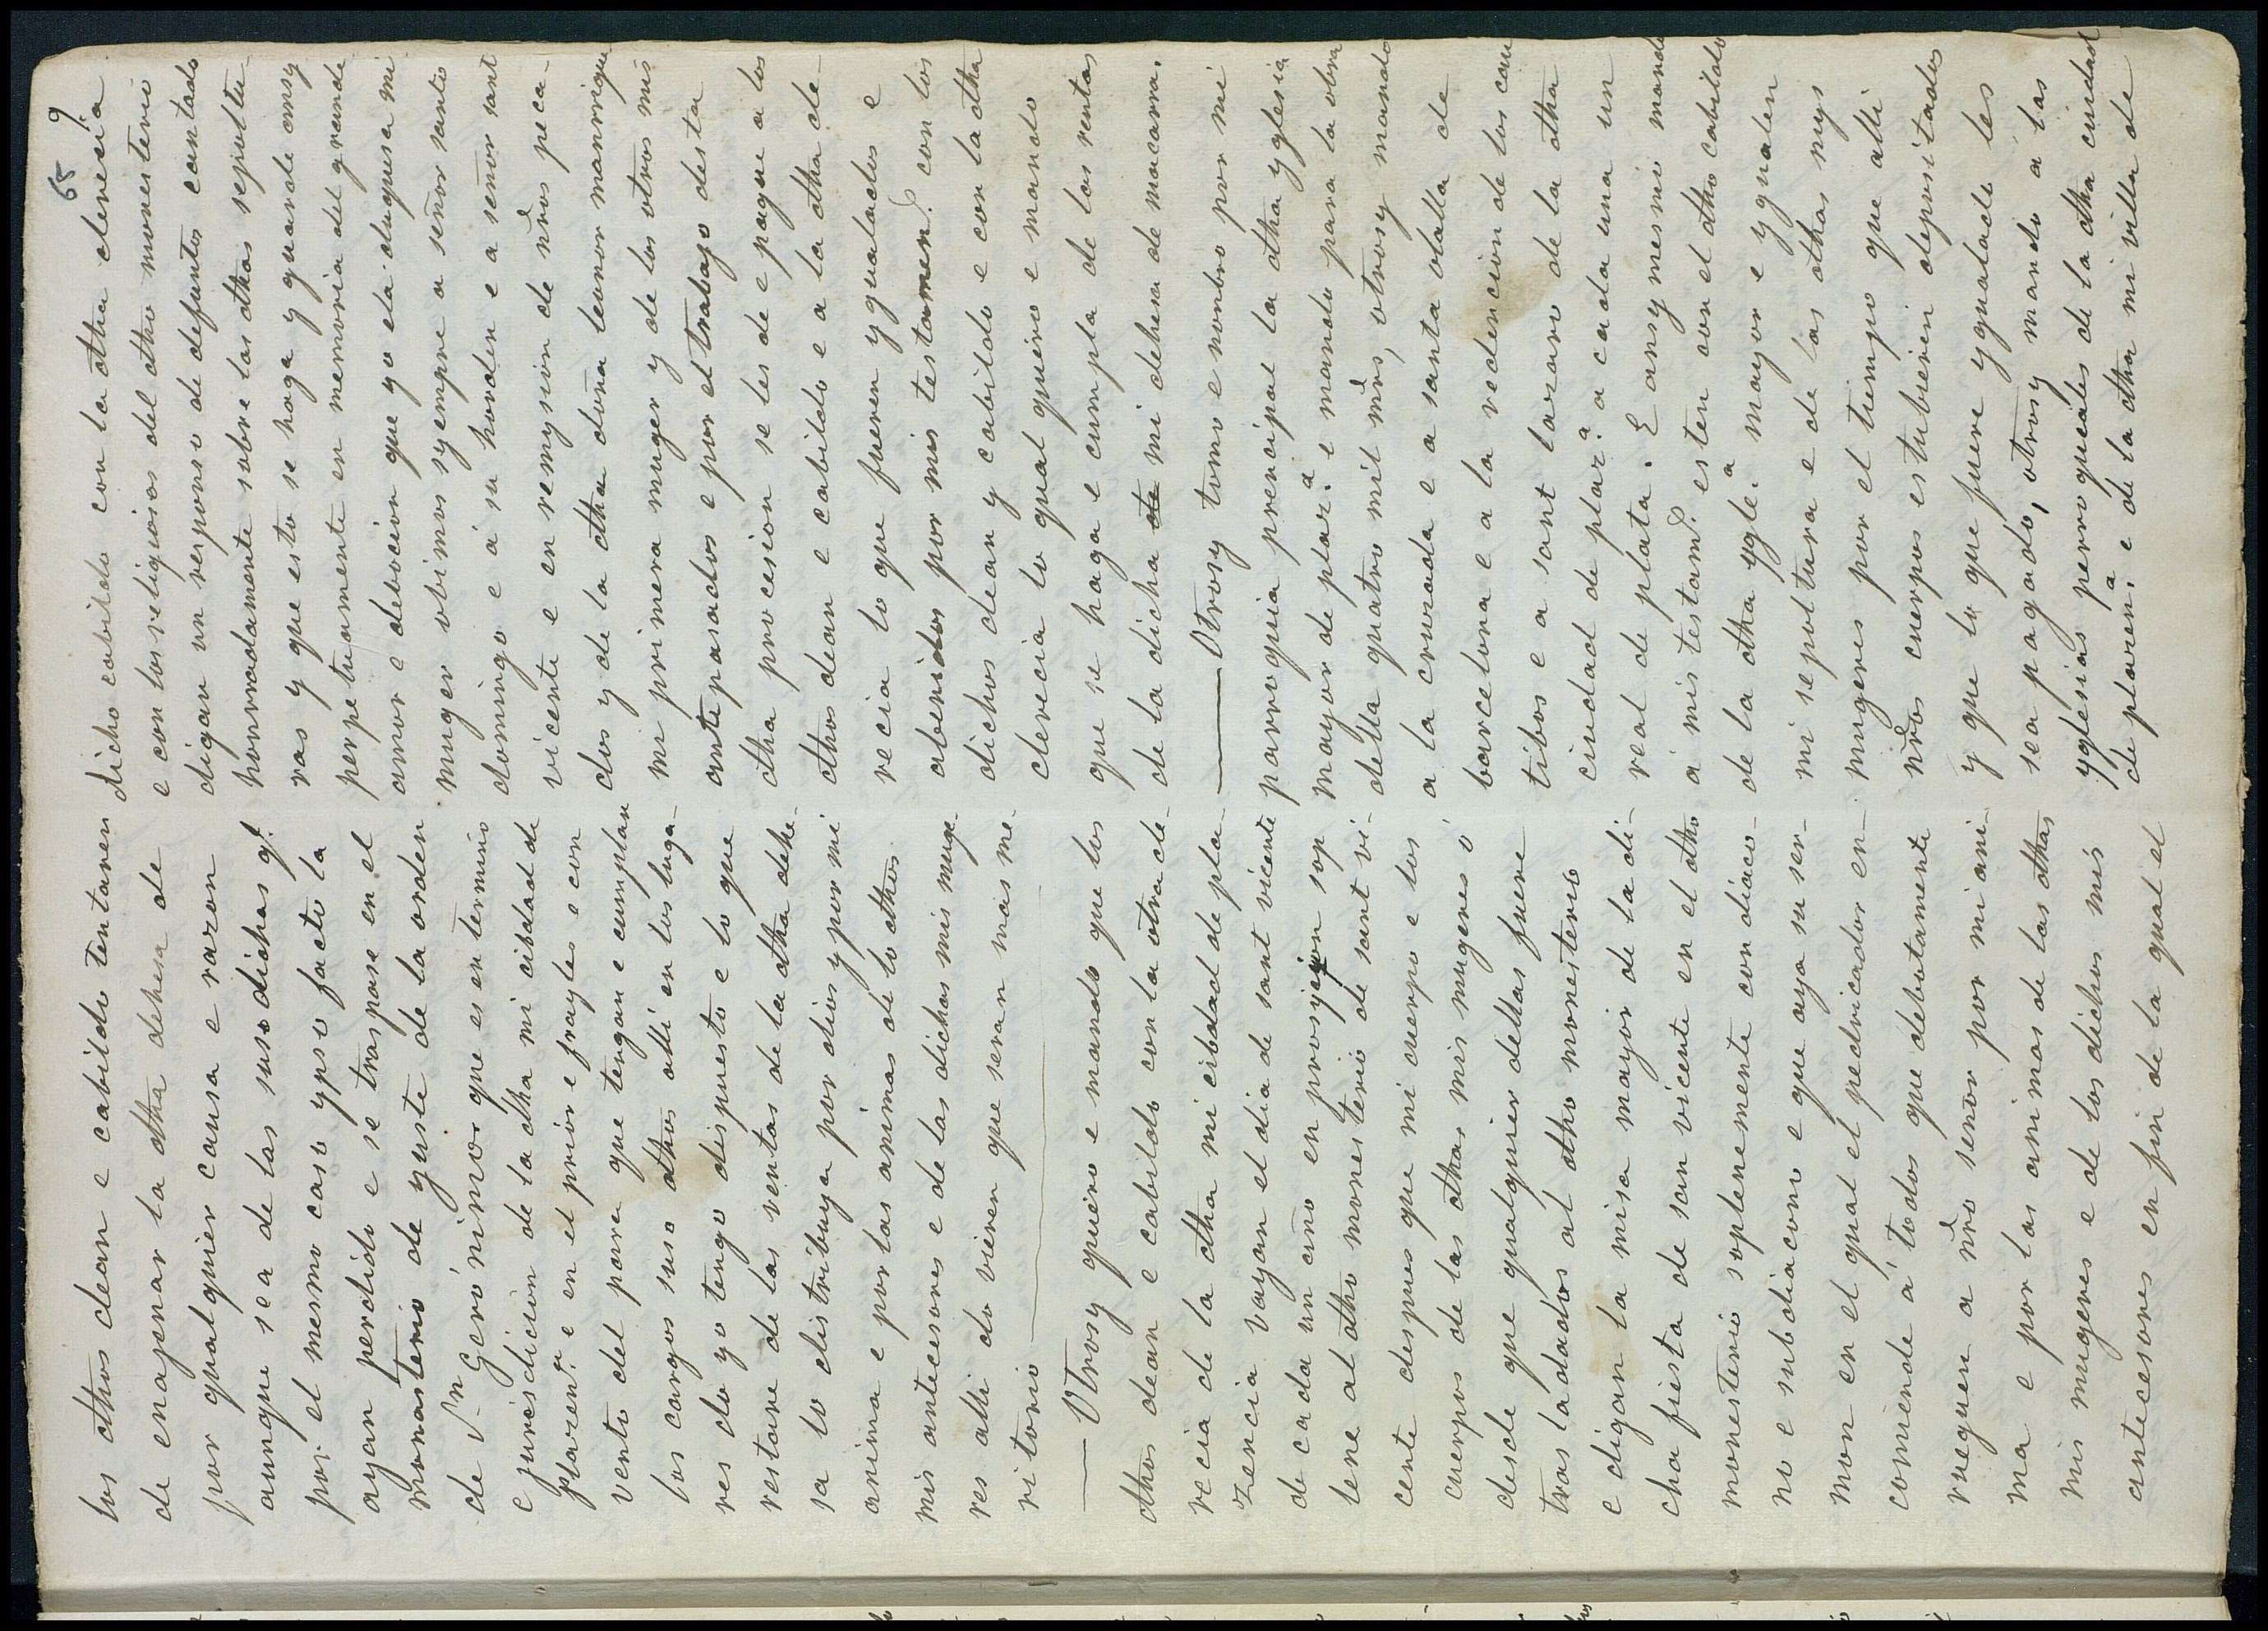 los dhos dean e cabildo tentaren
de enagenar la dha dehesa de
por qualquier causa e razon
aunque sea de las susodichas q!
por el mesmo caso ypso facto la
ayan perdido e se traspase en el
monasterio de yuste de la orden
de Sn Gerónimo que es en termino
e juresdicion de la dha mi cibdad de
plazen.a e en el prior e frayles e con
vento del para que tengan e cumplan
los cargos suso dhos alli en los luga-
res do yo tengo dispuesto e lo que
restare de las rentas de la dha dehe-
sa lo distribuya por dios y por mi
anima e por las animas de lo dhos
mis antecesores e de las dichas mis muge-
res alli do vieren que seran mas me-
ritorio
— Otrosy quiero e mando que los
dhos dean e cabildo con la otra cle-
recia de la dha mi cibdad de pla-
zencia vayan el dia de sant vicente
de cada un año en prosyçion sop
lene al dho monesterio de sant vi-
cente despues que mi cuerpo e los
cuerpos de las dhas mis mugeres ó
desde que qualquier dellas fuere
trasladados al dho monesterio
e digan la misa mayor de la di-
cha fiesta de san vicente en el dho
monesterio soplenemente con diaco-
no e subdiacono e que aya su ser-
mon en el qual el pedricador en-
comiende á todos que debotamente
rueguen a nro señor por mi ani-
ma e por las animas de las dhas
mis mugeres e de los dichos mis
antecesores en fin de la qual el
65 9
dicho cabildo con la otra clerecía
e con los religiosos del dho monesterio
digan un responso de defuntos cantado
honrradamente sobre las dhas sepultu-
ras y que esto se haga y guarde ansy
perpetuamente en memoria del grande
amor e debocion que yo e la duquesa mi
muger obimos syempre a señor santo
domingo e á su horden e a señor sant
vicente e en remysion de nros peca-
dos y de la dha doña leonor manrrique
mi primera muger y de los otros mis
antepasados e por el trabajo desta
dha procesion se les de e pague a los
dhos dean e cabildo e a la dha cle-
recia lo que fueren ygualados e
abenidos por mis testamen.s con los
dichos dean y cabildo e con la dha
clerecia lo qual quiero e mando
que se haga e cumpla de las rentas
de la dicha de mi dehesa de macarra.
— Otrosy tomo e nombro por mi
parroquia prencipal la dha yglesia
mayor de plaz.a e mando para la obra
della quatro mil mrs, otrosy mando
a la cruzada e a santa olalla de
barcelona e a la redencion de los cau
tibos e a sant lazaro de la dha
ciudad de plaz.a a cada una un
real de plata. E ansymesmo mando
á mis testam.s esten con el dho cabildo
de la dha ygle.a mayor e ygualen
mi sepoltura e de las dhas mys
mugeres por el tiempo que alli
nros cuerpos estubieren depositados
y que lo que fuere ygualado les
sea pagado, otrosy mando á las
yglesias perroquiales de la dha ciudad
de plazen.a e de la dha mi villa de